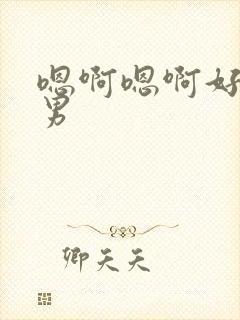 嗯啊嗯啊好
男
卿天天